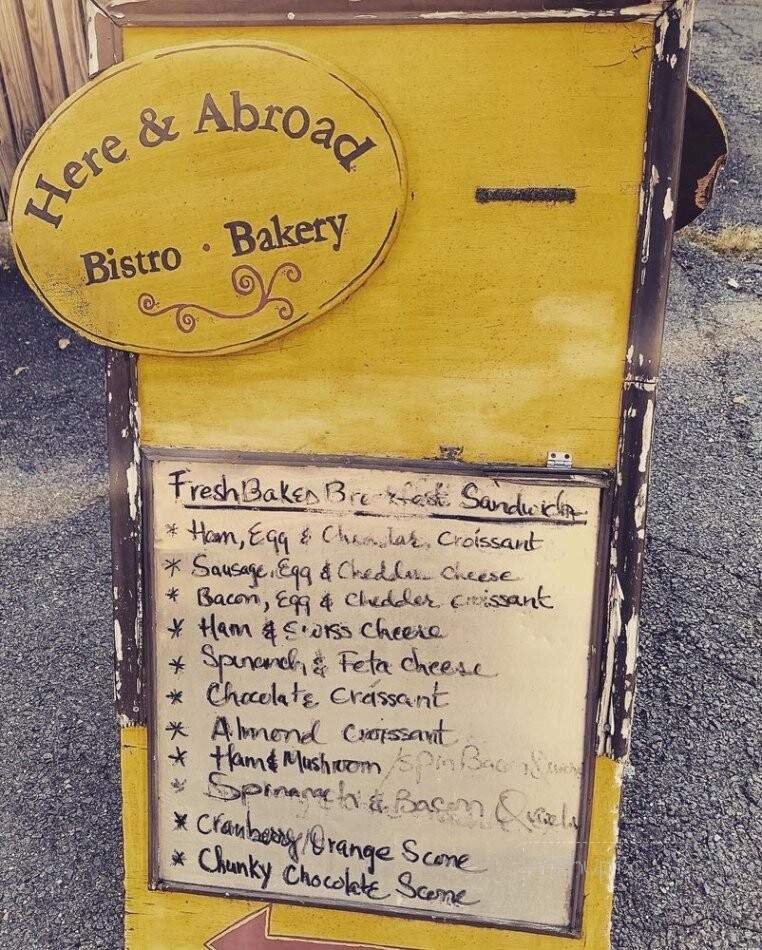 Here & Abroad
Bistro · Bakery
Fresh Baked Breakfast Sandwich
* Ham, Egg & Cheddar Croissant
* Sausage, Egg & Chedder Cheese
* Bacon, Egg & Chedder Croissant
* Ham & Swiss Cheese
* Spinanch & Feta Cheese
* Chocolate Croissant
* Almond Croissant
* Ham & Mushroom / Spin Bacon
* Spinanach & Bacon
* Cranberry/Orange Scone
* Chunky Chocolate Scone